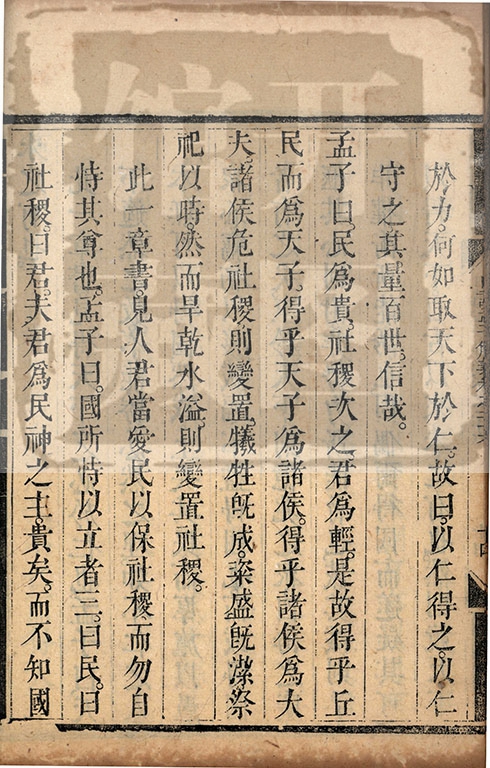 於力。何如取天下於仁。故曰。以仁得之。以仁
守之。其量百世。信哉。
孟子曰。民爲貴。社稷次之。君爲輕。是故得乎丘
民而爲天子。得乎天子爲諸侯。得乎諸侯爲大
夫。諸侯危社稷則變置。犧牲旣成。粢盛旣潔。祭
祀以時。然而旱乾水溢。則變置社稷。
此一章書。見人君當愛民以保社稷。而勿自
恃其尊也。孟子曰。國所恃以立者三。曰民。曰
社稷。曰君。夫君爲民神之主。貴矣。而不知國